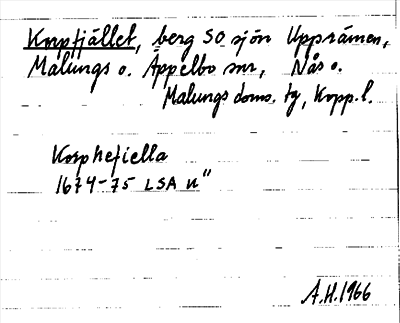 Korpfjället, berg SO sjön Uppsämen,
Malungs o. Äppelbo snr, Nås o.
Malungs doms. tg, Kopp. l.
Korphefiella
1674-75 LSA n"
A.H. 1966